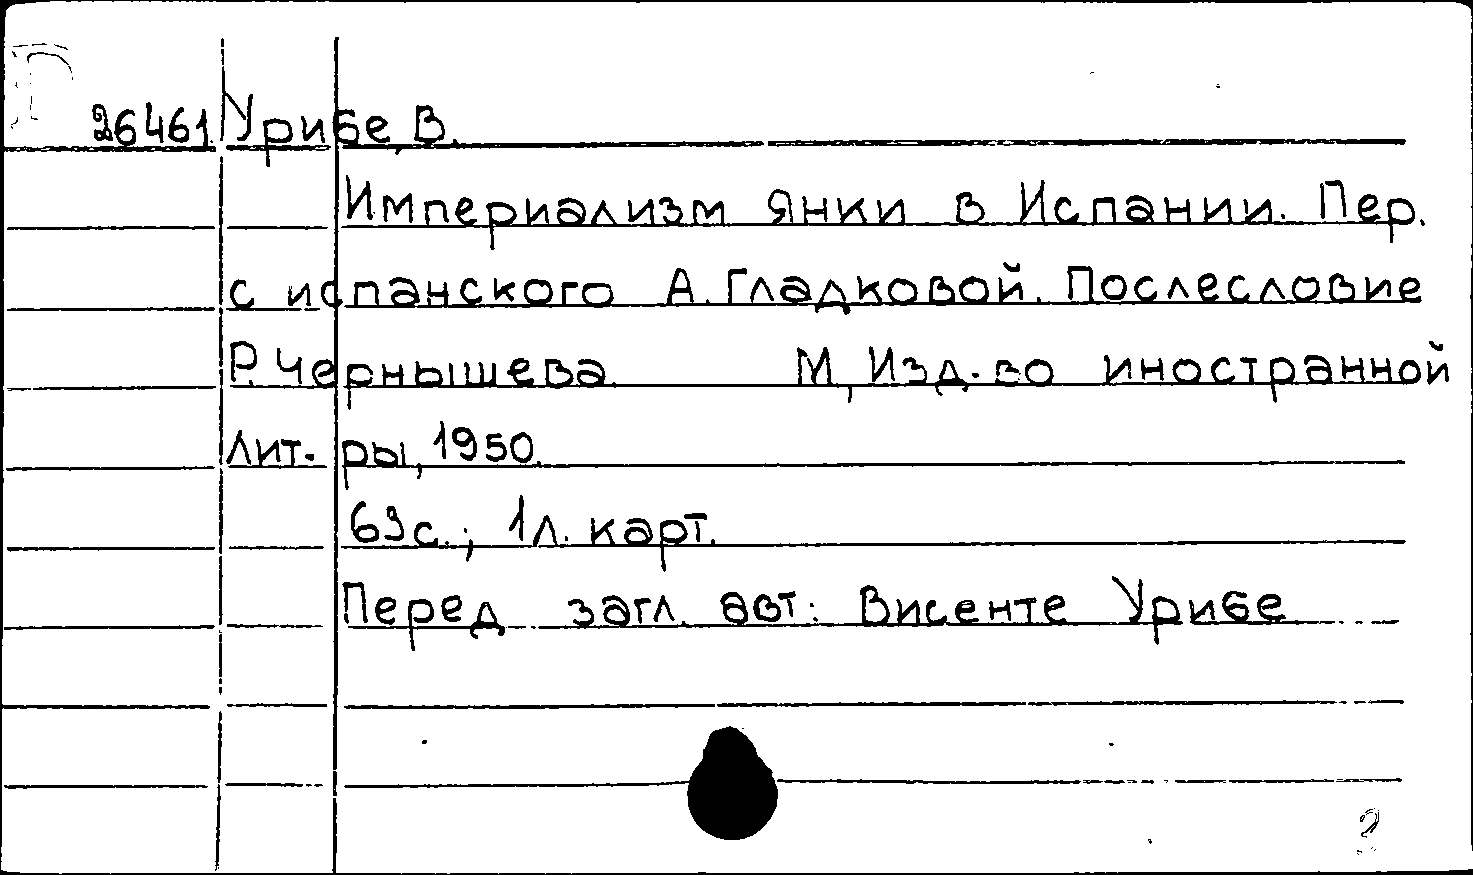 26461 Урибе, В.
Империализм янки в Испании. Пер.
с испанского А. Гладковой. Послесловие
Р. Чернышева М., Изд-во иностранной
лит-ры, 1950.
63с.; 1л. карт.
Перед загл. авт.: Висенте Урибе